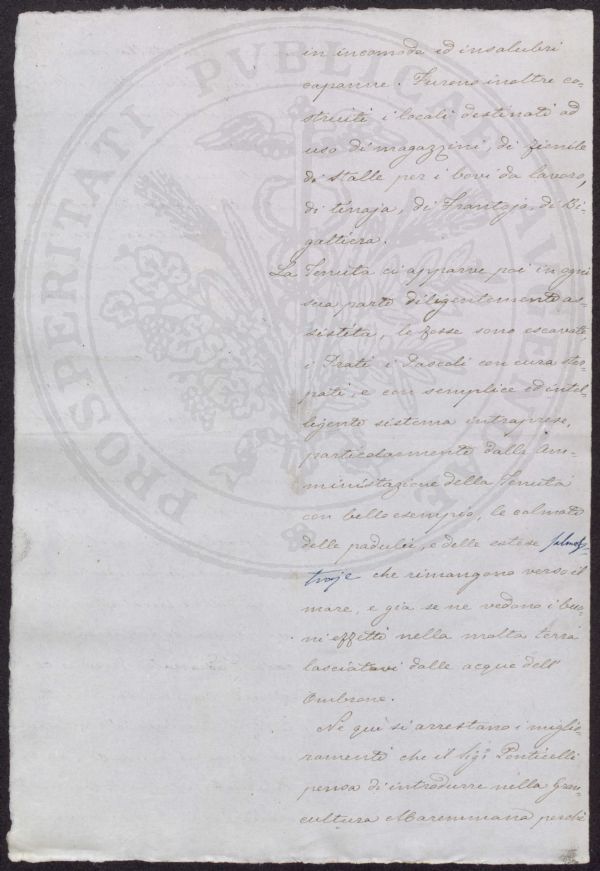 in incomode ed insalubri
capanne. Furono inoltre co-
struiti i locali destinati ad
uso di magazzini, di fienile
di stalle per i bovi da lavoro,
di tinaja, di Frantojo, di Bi-
gattiera.
La Tenuta ci apparve poi in ogni
sua parte diligentemente as-
sistita, le fosse sono escavate,
i Prati i Pascoli con cura ster-
pati, e con semplice ed intel-
ligente sistema intraprese,
particolarmente dalla Am-
ministazione della Tenuta
con bello esempio, le colmate
delle paduli, e delle estese
che rimangono verso il
mare, e già se ne vedono i buo-
ni effetti nella molta terra
lasciatavi dalle acque dell'
Ombrone.
Ne quì si arrestano i miglio-
ramenti che il Sigr Ponticelli
pensa di introdurre nella Gran
cultura Maremmana perchè
PROSPERITATI PUBLICAE AUGENDAE